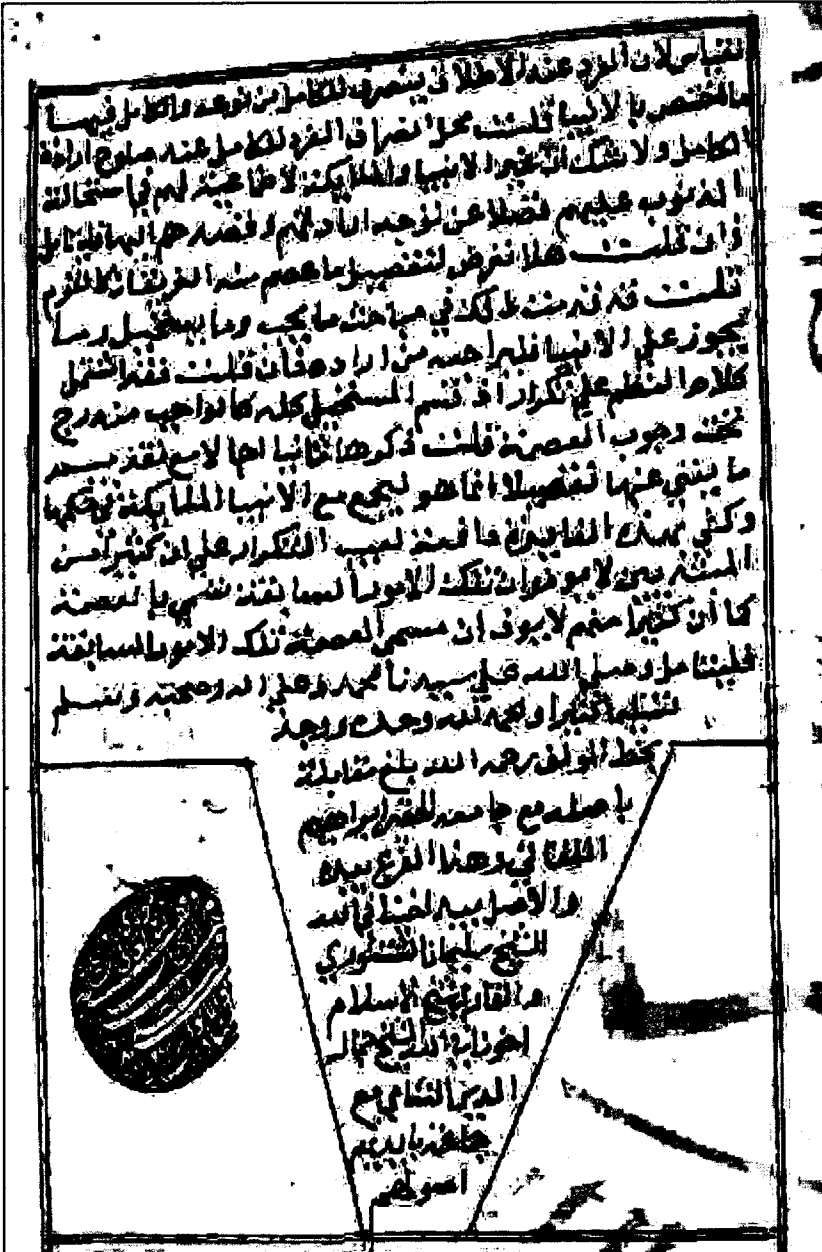 القياس لان المفرد عند الاطلاق ينصرف للكامل من نوعه والكامل فيهما
ما اختص بالانبيا قلت محل انصراف المفرد للكامل عند صلوح ارادة
الكامل ولا شك ان غير الانبيا والملايكة لا طماعية لهم في استحالة
الذنوب عليهم فضلا عن توجه ارادتهم وقصدهم اليها
فان قلت هلا تعرض لتفصيل ما عصم منه الفريقان
قلت قد قدمت ذلك في مباحث ما يجب وما يستحيل وما
يجوز على الانبيا فليراجعه من اراده فان قلت فقد اشتمل
كلام النظم على تكرار اذ قسم المستحيل كله كالواجب مندرج
تحت وجوب العصمة قلت ذكرها ثانيا اجمالا مع تقديم
ما يغني عنها تفصيلا انما هو ليجمع مع الانبيا الملايكة في حكمها
وكفى بهذه الفايدة دافعة لعيب التكرار على ان كثيرا من
المبتديين لا يعرف ان تلك الامور السابقة تسمى بالعصمة
كما ان كثيرا منهم لا يعرف ان مسمى العصمة تلك الامور السابقة
فليتامل وصلى الله على سيدنا محمد وعلى اله وصحبه وسلم
تسليما كثيرا والحمد لله وحده ووجد
بخط المولف رحمه الله بلغ مقابلة
باصله مع جامعه الحقير ابراهيم
اللقاني وهذا الفرع بيده
والاصل بيد اخينا في الله
الشيخ سليمان
والقاري شيخ الاسلام
اخونا في الله الشيخ جمال
الدين الشامي مع
جماعة